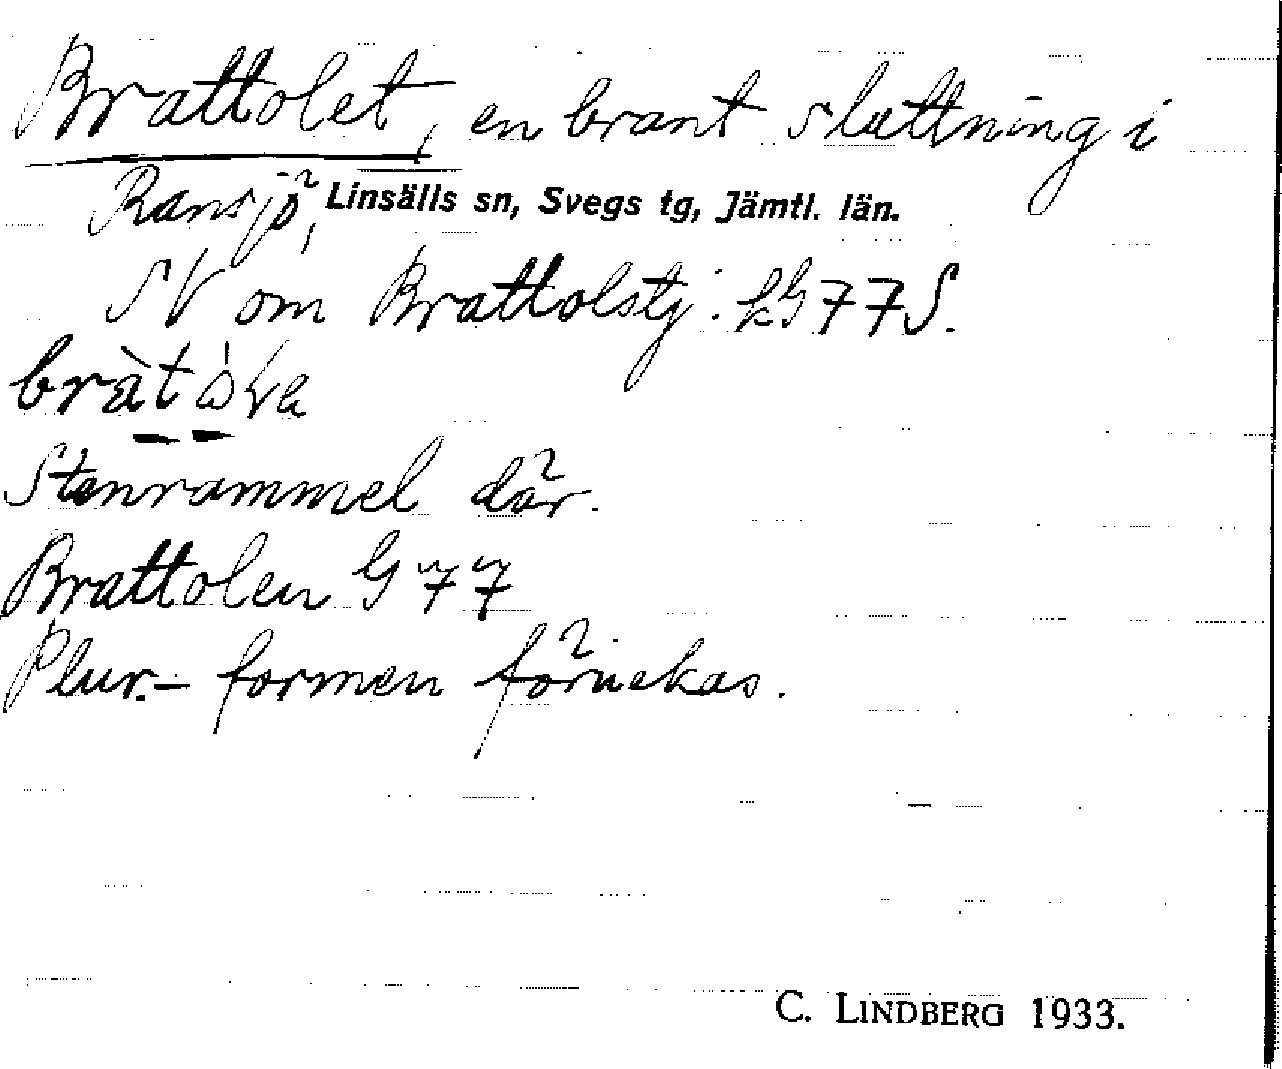 Brattolet, en brant slättning i
Ransjö, Linsälls sn, Svegs tg, Jämtl. län.
SV om Brattolstj: kG77S.
Stenrammel där.
Brattolen G77
Plur.- formen förnekas.
C. LINDBERG 1933.